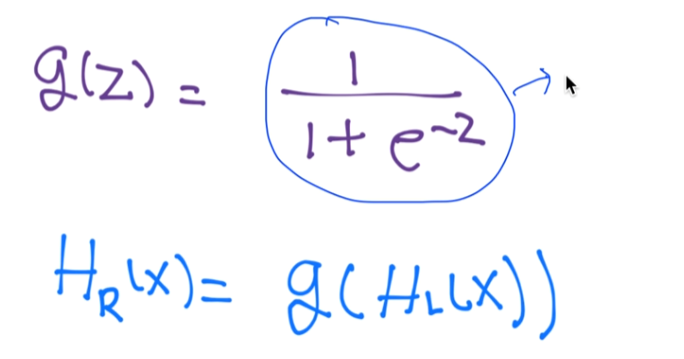 g(z) = 1 / (1 + e^-z)
H_R(x) = g(H_L(x))